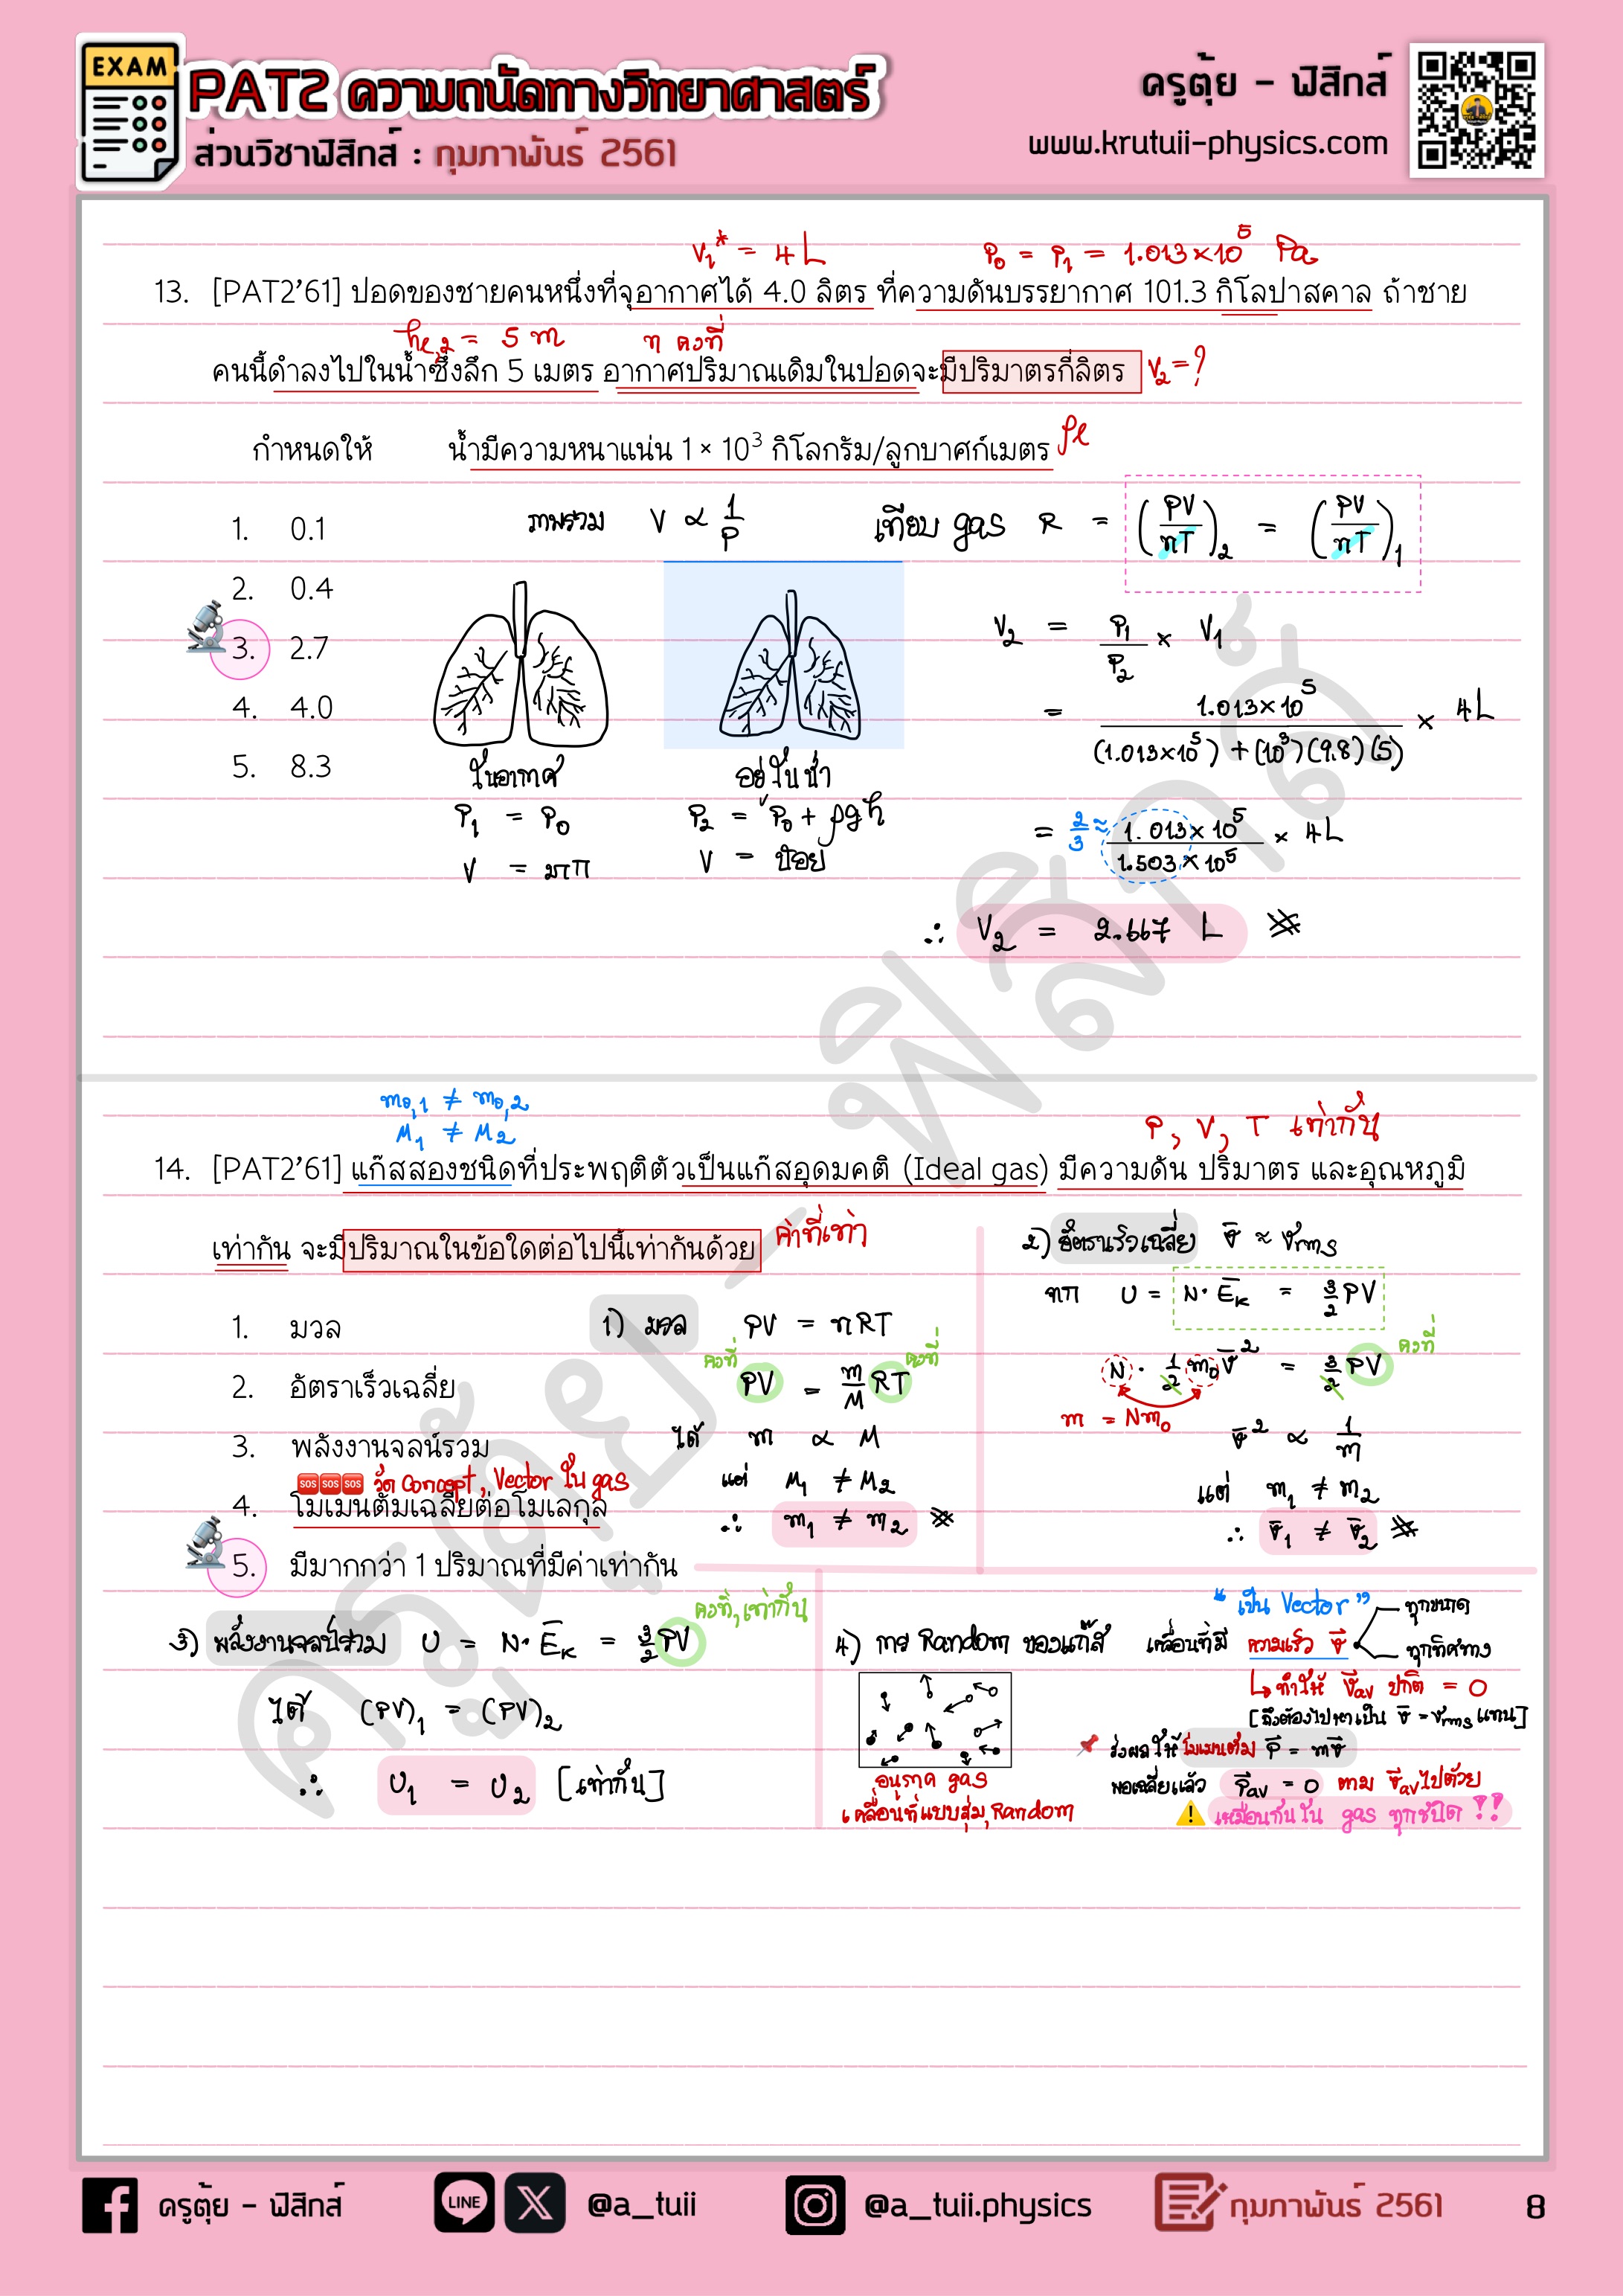 EXAM
PAT2 ความถนัดทางวิทยาศาสตร์
ส่วนวิชาฟิสิกส์ : กุมภาพันธ์ 2561
ครูตุ้ย - ฟิสิกส์
www.krutuii-physics.com
V₁* = 4 L
P₀ = P₁ = 1.013×10⁵ Pa
13. [PAT2'61] ปอดของชายคนหนึ่งที่จุอากาศได้ 4.0 ลิตร ที่ความดันบรรยากาศ 101.3 กิโลปาสคาล ถ้าชาย
hₗ,₂ = 5 m
n คงที่
คนนี้ดำลงไปในน้ำซึ่งลึก 5 เมตร อากาศปริมาณเดิมในปอดจะมีปริมาตรกี่ลิตร V₂ = ?
กำหนดให้ น้ำมีความหนาแน่น 1 × 10³ กิโลกรัม/ลูกบาศก์เมตร ρₗ
1. 0.1
2. 0.4
3. 2.7
4. 4.0
5. 8.3
ภาพรวม V ∝ 1/P
เทียบ gas R = (PV/nT)₂ = (PV/nT)₁
ในอากาศ
P₁ = P₀
V = มาก
อยู่ในน้ำ
P₂ = P₀ + ρgh
V = น้อย
V₂ = P₁/P₂ × V₁
= 1.013×10⁵ / (1.013×10⁵) + (10³)(9.8)(5) × 4L
= 2/3 ≈ 1.013×10⁵ / 1.503×10⁵ × 4L
∴ V₂ = 2.667 L
m₀,₁ ≠ m₀,₂
M₁ ≠ M₂
P, V, T เท่ากัน
14. [PAT2'61] แก๊สสองชนิดที่ประพฤติตัวเป็นแก๊สอุดมคติ (Ideal gas) มีความดัน ปริมาตร และอุณหภูมิ
เท่ากัน จะมีปริมาณในข้อใดต่อไปนี้เท่ากันด้วย ค่าที่เท่า
1. มวล
2. อัตราเร็วเฉลี่ย
3. พลังงานจลน์รวม
🆘🆘🆘 วัด Concept, Vector ใน gas
4. โมเมนตัมเฉลี่ยต่อโมเลกุล
5. มีมากกว่า 1 ปริมาณที่มีค่าเท่ากัน
1) มวล PV = nRT
คงที่ คงที่
PV = m/M RT
ได้ m ∝ M
แต่ M₁ ≠ M₂
∴ m₁ ≠ m₂
2) อัตราเร็วเฉลี่ย v̄ ≈ vrms
จาก U = N·Ēₖ = 3/2 PV
คงที่
N · 1/2 m₀v̄² = 3/2 PV
m = Nm₀
v̄² ∝ 1/m
แต่ m₁ ≠ m₂
∴ v̄₁ ≠ v̄₂
3) พลังงานจลน์รวม U = N·Ēₖ = 3/2 PV
คงที่, เท่ากัน
ได้ (PV)₁ = (PV)₂
∴ U₁ = U₂ [เท่ากัน]
4) การ Random ของแก๊ส เคลื่อนที่มี ความเร็ว v⃗
"เป็น Vector"
ทุกขนาด
ทุกทิศทาง
↳ ทำให้ v⃗av ปกติ = 0
[ถึงต้องไปหาเป็น v̄ = vrms แทน]
อนุภาค gas
เคลื่อนที่แบบสุ่ม, Random
📌 ส่งผลให้ โมเมนตัม P⃗ = mv⃗
พอเฉลี่ยแล้ว P⃗av = 0 ตาม v⃗av ไปด้วย
⚠️ เหมือนกันใน gas ทุกชนิด !!
ครูตุ้ย - ฟิสิกส์
ครูตุ้ย - ฟิสิกส์
LINE
@a_tuii
@a_tuii.physics
กุมภาพันธ์ 2561
8